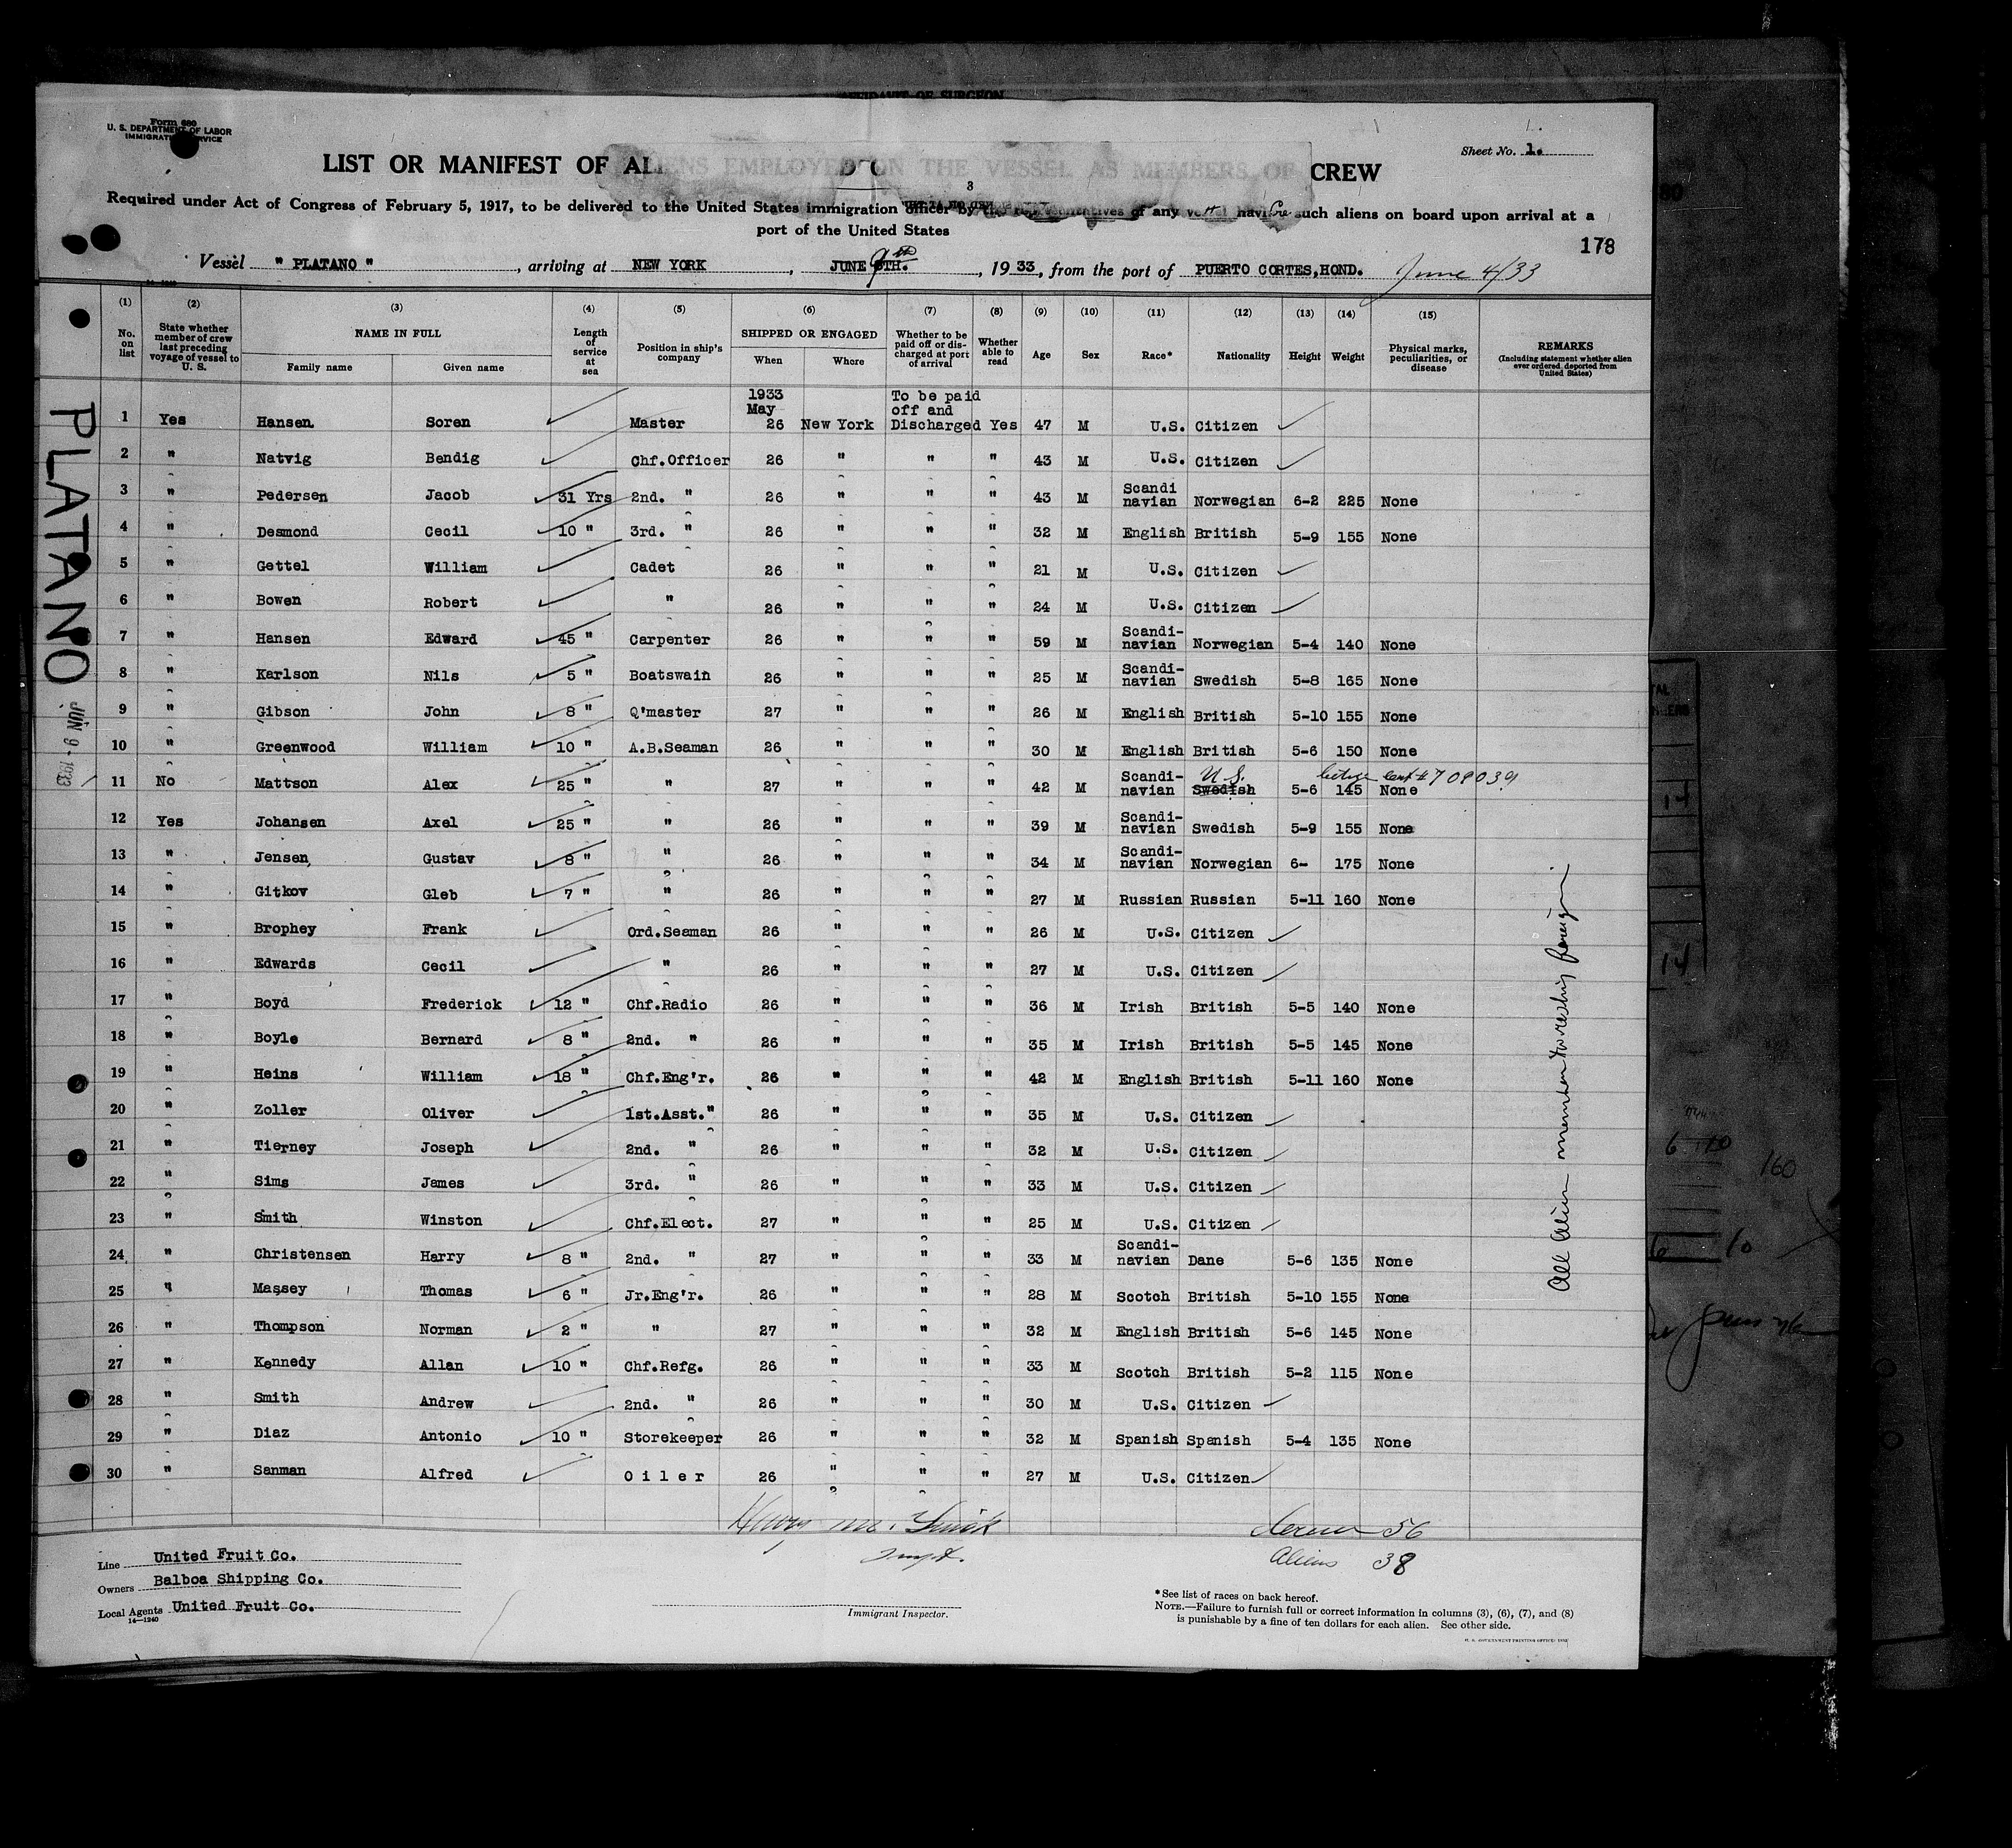 AFFIDAVIT OF SURGEON
Form 680
U. S. DEPARTMENT OF LABOR
IMMIGRATION SERVICE
Sheet No. 1.
LIST OR MANIFEST OF ALIENS EMPLOYED ON THE VESSEL AS MEMBERS OF CREW
Required under Act of Congress of February 5, 1917, to be delivered to the United States immigration officer by the representatives of any vessel having such aliens on board upon arrival at a
port of the United States
178
Vessel " PLATANO ", arriving at NEW YORK, JUNE 9th, 1933, from the port of PUERTO CORTES, HOND. June 4/33
(1) (2) (3) (4) (5) (6) (7) (8) (9) (10) (11) (12) (13) (14) (15)
No. on list
State whether member of crew last preceding voyage of vessel to U. S.
NAME IN FULL
Family name Given name
Length of service at sea
Position in ship's company
SHIPPED OR ENGAGED
When Where
Whether to be paid off or discharged at port of arrival
Whether able to read
Age Sex Race* Nationality Height Weight
Physical marks, peculiarities, or disease
REMARKS
(Including statement whether alien ever ordered deported from United States)
1933 To be paid
May off and
1 Yes Hansen Soren Master 26 New York Discharged Yes 47 M U.S. Citizen
2 " Natvig Bendig Chf.Officer 26 " " " 43 M U.S. Citizen
3 " Pedersen Jacob 31 Yrs 2nd. " 26 " " " 43 M Scandi navian Norwegian 6-2 225 None
4 " Desmond Cecil 10 " 3rd. " 26 " " " 32 M English British 5-9 155 None
5 " Gettel William Cadet 26 " " " 21 M U.S. Citizen
6 " Bowen Robert " 26 " " " 24 M U.S. Citizen
7 " Hansen Edward 45 " Carpenter 26 " " " 59 M Scandi-navian Norwegian 5-4 140 None
8 " Karlson Nils 5 " Boatswain 26 " " " 25 M Scandi-navian Swedish 5-8 165 None
9 " Gibson John 8 " Q'master 27 " " " 26 M English British 5-10 155 None
10 " Greenwood William 10 " A.B.Seaman 26 " " " 30 M English British 5-6 150 None
11 No Mattson Alex 25 " " 27 " " " 42 M Scandi-navian Swedish U.S. 5-6 145 None
12 Yes Johansen Axel 25 " " 26 " " " 39 M Scandi-navian Swedish 5-9 155 None
13 " Jensen Gustav 8 " " 26 " " " 34 M Scandi-navian Norwegian 6- 175 None
14 " Gitkov Gleb 7 " " 26 " " " 27 M Russian Russian 5-11 160 None
15 " Brophey Frank Ord.Seaman 26 " " " 26 M U.S. Citizen
16 " Edwards Cecil " 26 " " " 27 M U.S. Citizen
17 " Boyd Frederick 12 " Chf.Radio 26 " " " 36 M Irish British 5-5 140 None
18 " Boyle Bernard 8 " 2nd. " 26 " " " 35 M Irish British 5-5 145 None
19 " Heins William 18 " Chf.Eng'r. 26 " " " 42 M English British 5-11 160 None
20 " Zoller Oliver 1st.Asst." 26 " " " 35 M U.S. Citizen
21 " Tierney Joseph 2nd. " 26 " " " 32 M U.S. Citizen
22 " Sims James 3rd. " 26 " " " 33 M U.S. Citizen
23 " Smith Winston Chf.Elect. 27 " " " 25 M U.S. Citizen
24 " Christensen Harry 8 " 2nd. " 27 " " " 33 M Scandi-navian Dane 5-6 135 None
25 " Massey Thomas 6 " Jr.Eng'r. 26 " " " 28 M Scotch British 5-10 155 None
26 " Thompson Norman 2 " " 27 " " " 32 M English British 5-6 145 None
27 " Kennedy Allan 10 " Chf.Refg. 26 " " " 33 M Scotch British 5-2 115 None
28 " Smith Andrew 2nd. " 26 " " " 30 M U.S. Citizen
29 " Diaz Antonio 10 " Storekeeper 26 " " " 32 M Spanish Spanish 5-4 135 None
30 " Sanman Alfred Oiler 26 " " " 27 M U.S. Citizen
PLATANO
JUN 9 - 1933
56
Aliens 38
Line United Fruit Co.
Owners Balboa Shipping Co.
Local Agents United Fruit Co.
14—1240
Immigrant Inspector.
*See list of races on back hereof.
NOTE.—Failure to furnish full or correct information in columns (3), (6), (7), and (8)
is punishable by a fine of ten dollars for each alien. See other side.
14
14
160